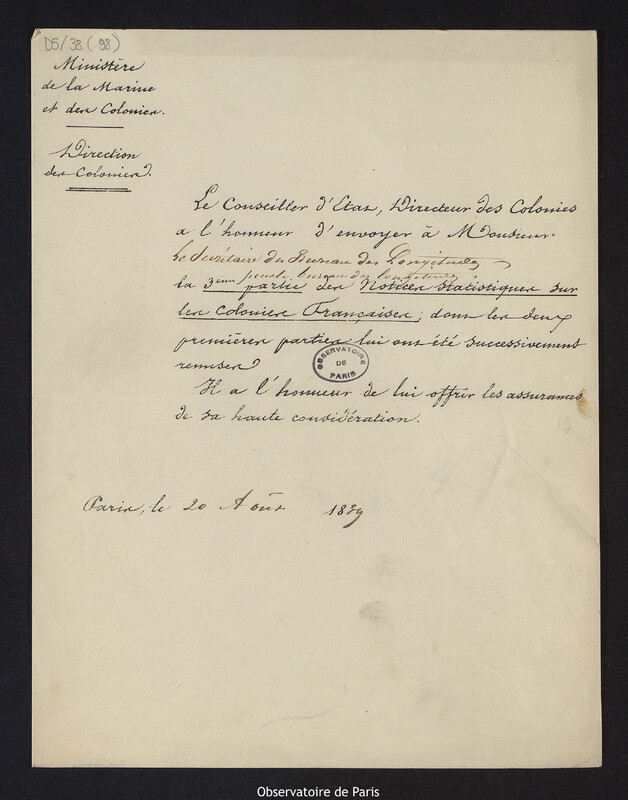 D5/38 (98)
Ministère
de la Marine
et des Colonies.
Direction
des Colonies.
Le Conseiller d'Etat, Directeur des Colonies
a l'honneur d'envoyer à Monsieur
le Secrétaire du Bureau des Longitudes
pour le bureau des longitudes,
la 3eme partie des Notices Statistiques sur
les Colonies Françaises; dont les deux
premières parties lui ont été successivement
remises.
OBSERVATOIRE
DE
PARIS
Il a l'honneur de lui offrir les assurances
de sa haute considération.
Paris, le 20 Août 1839
Observatoire de Paris